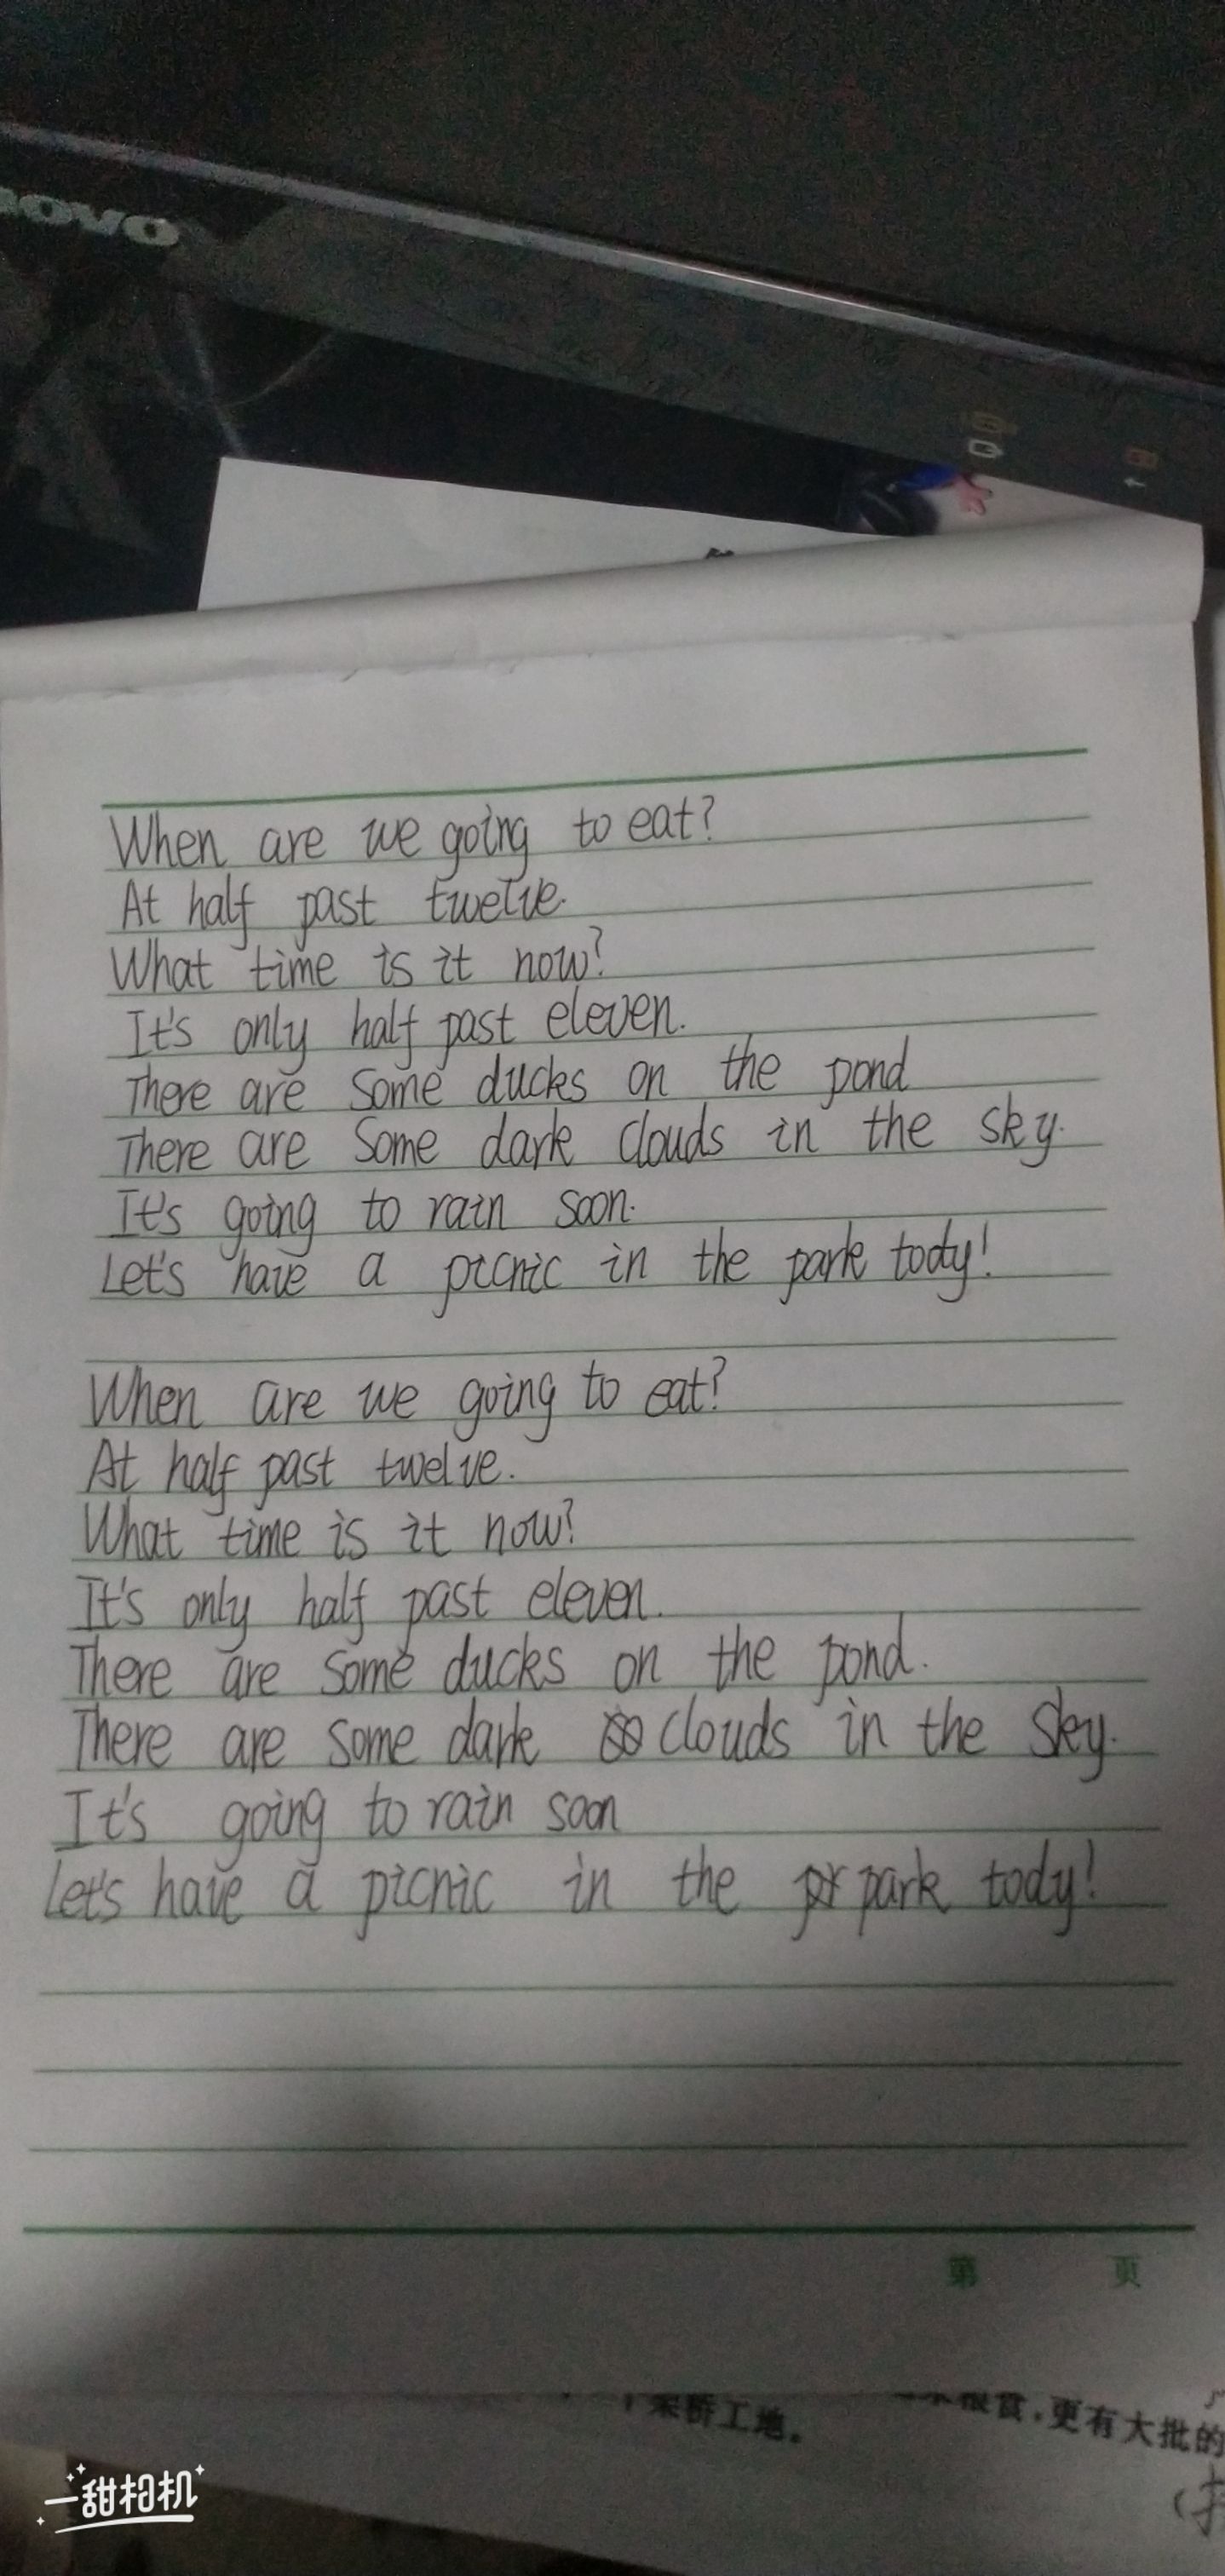 When are we going to eat?
At half past twelve.
What time is it now?
It's only half past eleven.
There are some ducks on the pond
There are some dark clouds in the sky.
It's going to rain soon.
Let's have a picnic in the park tody!
When are we going to eat?
At half past twelve.
What time is it now?
It's only half past eleven.
There are some ducks on the pond.
There are some dark clouds in the sky.
It's going to rain soon
Let's have a picnic in the park tody!
第 页
架桥工地。
粮食,更有大批的
一甜相机